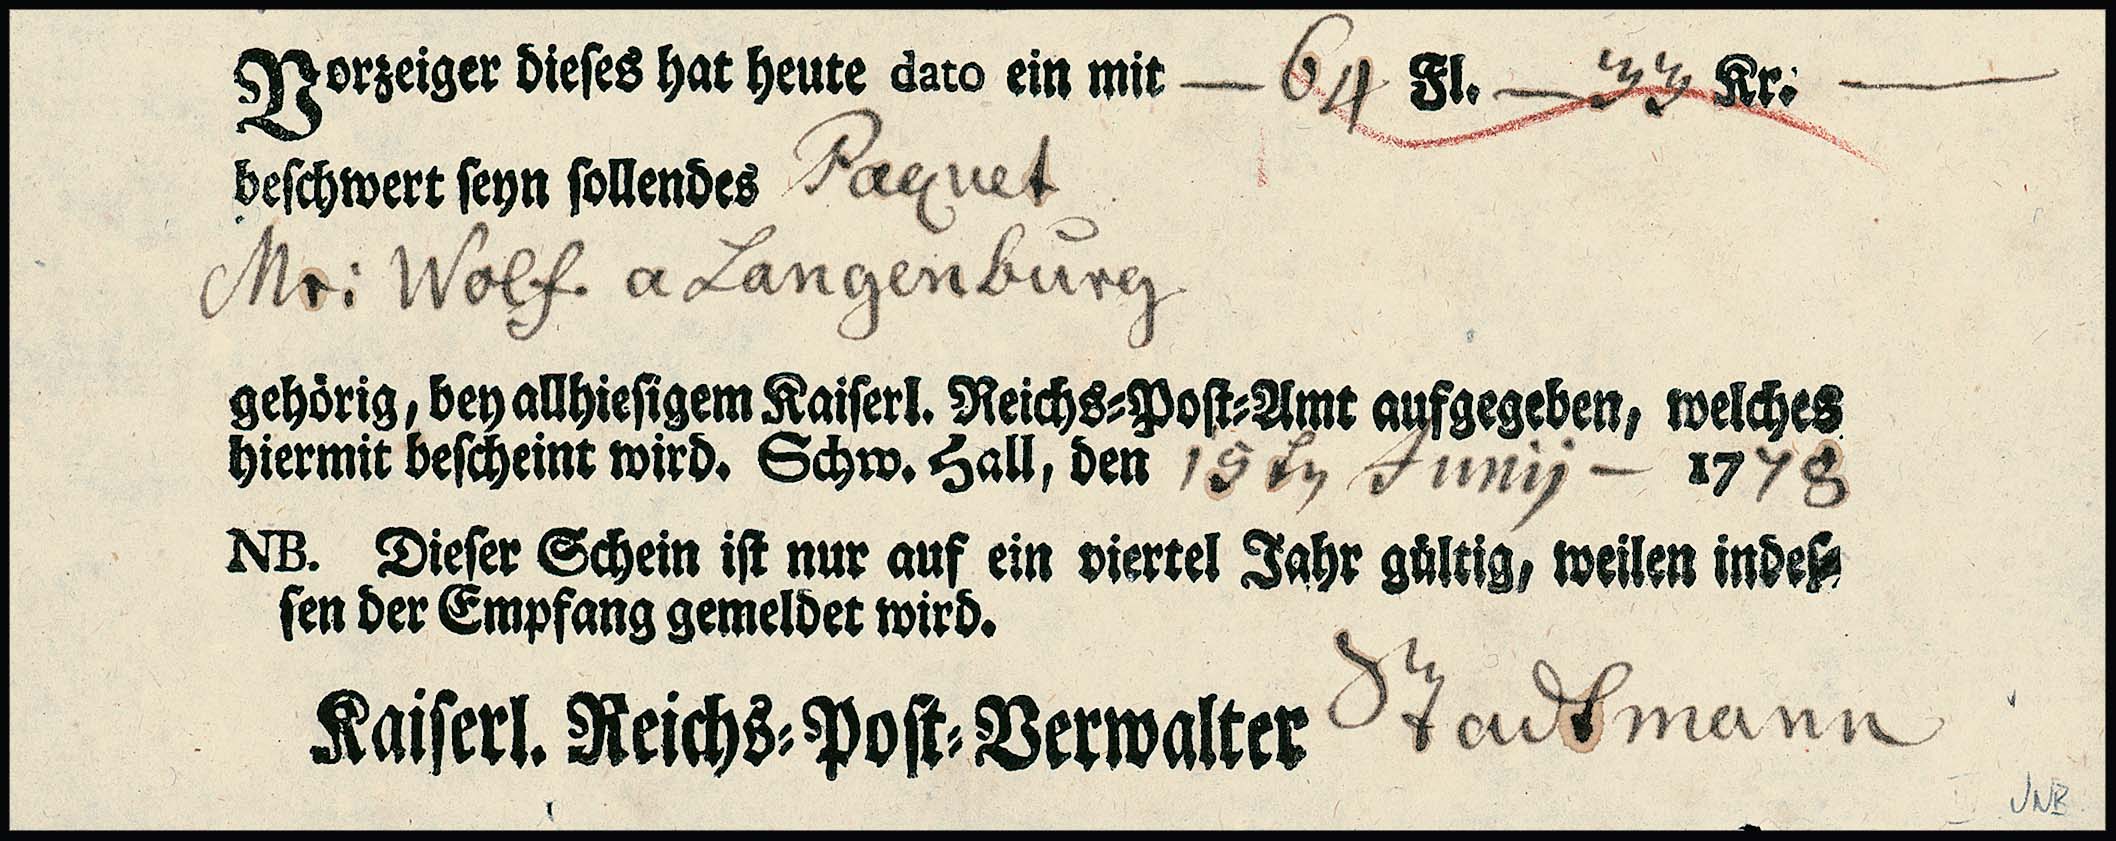 Vorzeiger dieses hat heute dato ein mit — 64 Fl. — 33 Kr: —
beschwert seyn sollendes Paquet
Mr: Wolf. a Langenburg
gehörig, bey allhiesigem Kaiserl. Reichs-Post-Amt aufgegeben, welches
hiermit bescheint wird. Schw. Hall, den 15 tn Junij — 1778
NB. Dieser Schein ist nur auf ein viertel Jahr gültig, weilen indes-
sen der Empfang gemeldet wird.
Kaiserl. Reichs-Post-Verwalter Stadtmann